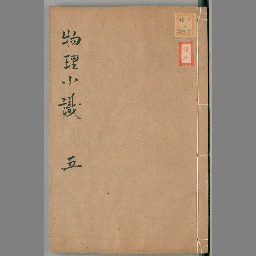 物理小識
五